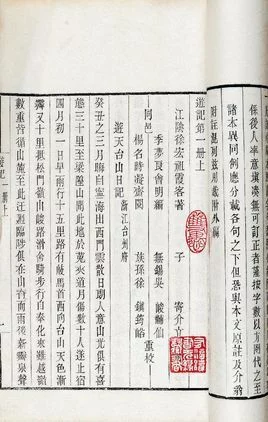 係後人率意填湊無可訂正者槩按字數以方圈代之至
諸本異同例應分載各句之下但恐與本文原註及介翁
附註混列茲用載附外編
遊記第一冊上
江陰徐宏祖霞客著 子 寄介立
季夢良會明編 無錫吳
同邑
楊名時凝齋閱 族孫徐 鎮筠峪 重校
遊天台山日記 浙江台州府
癸丑之三月晦自寧海出西門雲散日朗人意山光俱有喜
態三十里至梁隍山聞此地於菟夾道月傷數十人遂止宿
四月初一日早雨行十五里路有岐馬首西向台山天色漸
霽又十里抵松門嶺山峻路滑舍騎步行自奉化來雖越嶺
數重皆循山麓至此迂迴臨陟俱在山脊而雨後新霽泉聲